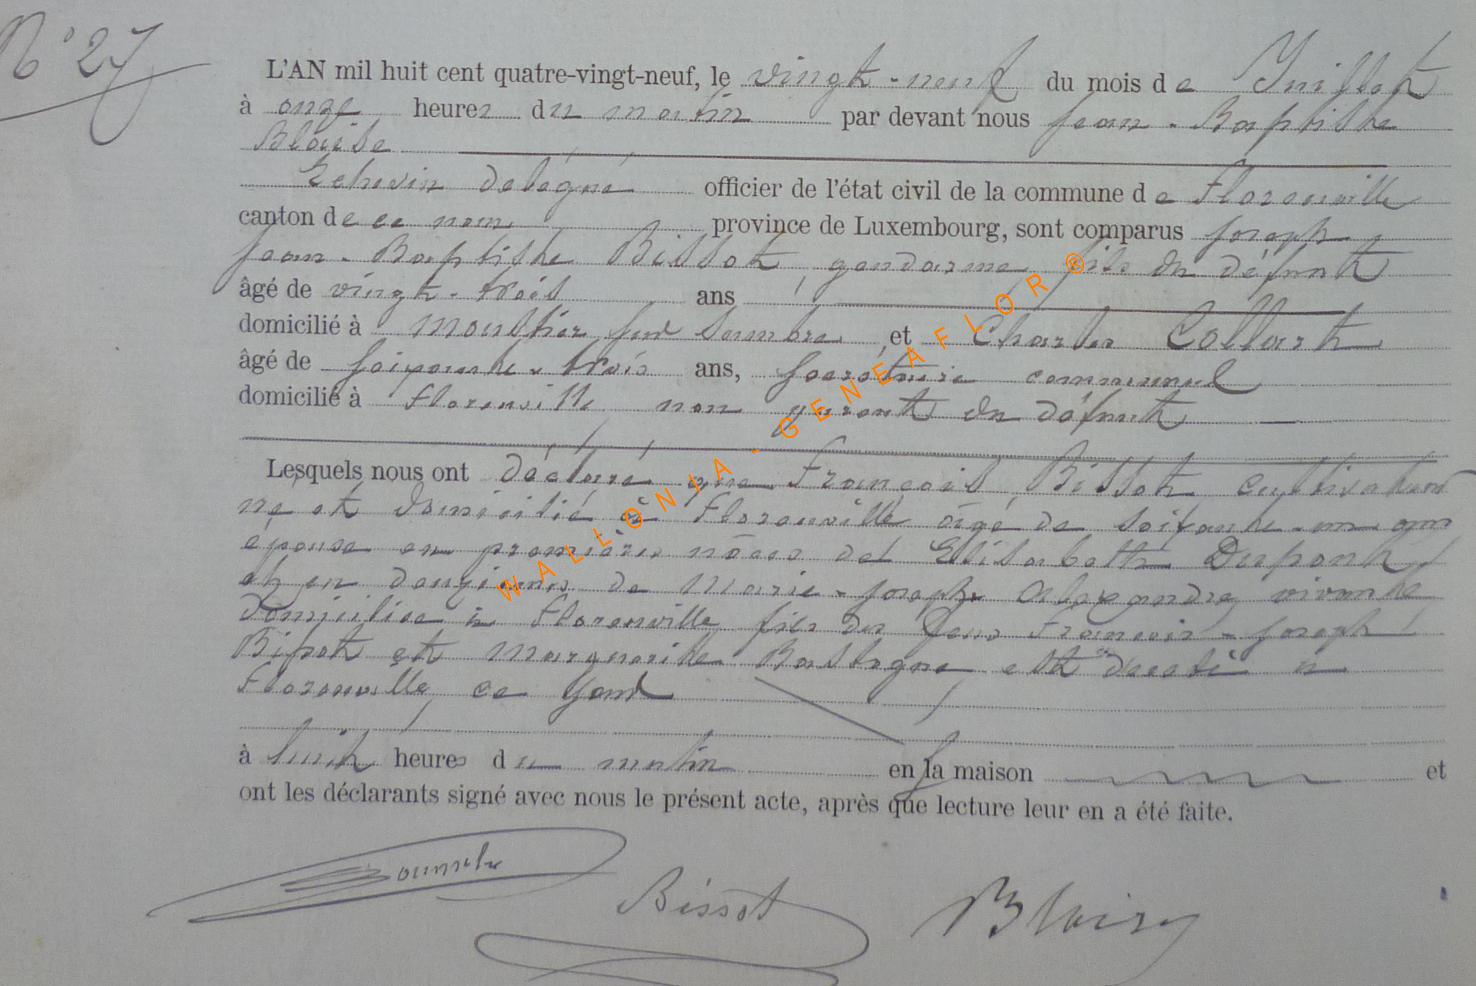 N° 27
L'AN mil huit cent quatre-vingt-neuf, le vingt-neuf du mois de Juillet
à onze heures du matin par devant nous Jean-Baptiste
Blaise
Echevin délégué officier de l'état civil de la commune de Florenville
canton de ce nom province de Luxembourg, sont comparus Joseph
Jean-Baptiste Bissot, gendarme fils du défunt
âgé de vingt-trois ans
domicilié à Moustier sur Sambre et Charles Collart
âgé de soixante-trois ans, secrétaire communal
domicilié à Florenville non parent du défunt
Lesquels nous ont déclaré que François Bissot cultivateur
né et domicilié à Florenville âgé de soixante-un ans
époux en premières noces de Elisabeth Dupont
et en deuxièmes de Marie-Joseph Alexandre, vivante
domiciliée à Florenville fils des feus François-Joseph
Bissot et Marguerite Bastogne est décédé à
Florenville, ce jour
à huit heures du matin en sa maison et
ont les déclarants signé avec nous le présent acte, après que lecture leur en a été faite.
Bissot Blaise
WALLONIA-GENEAFLOR®